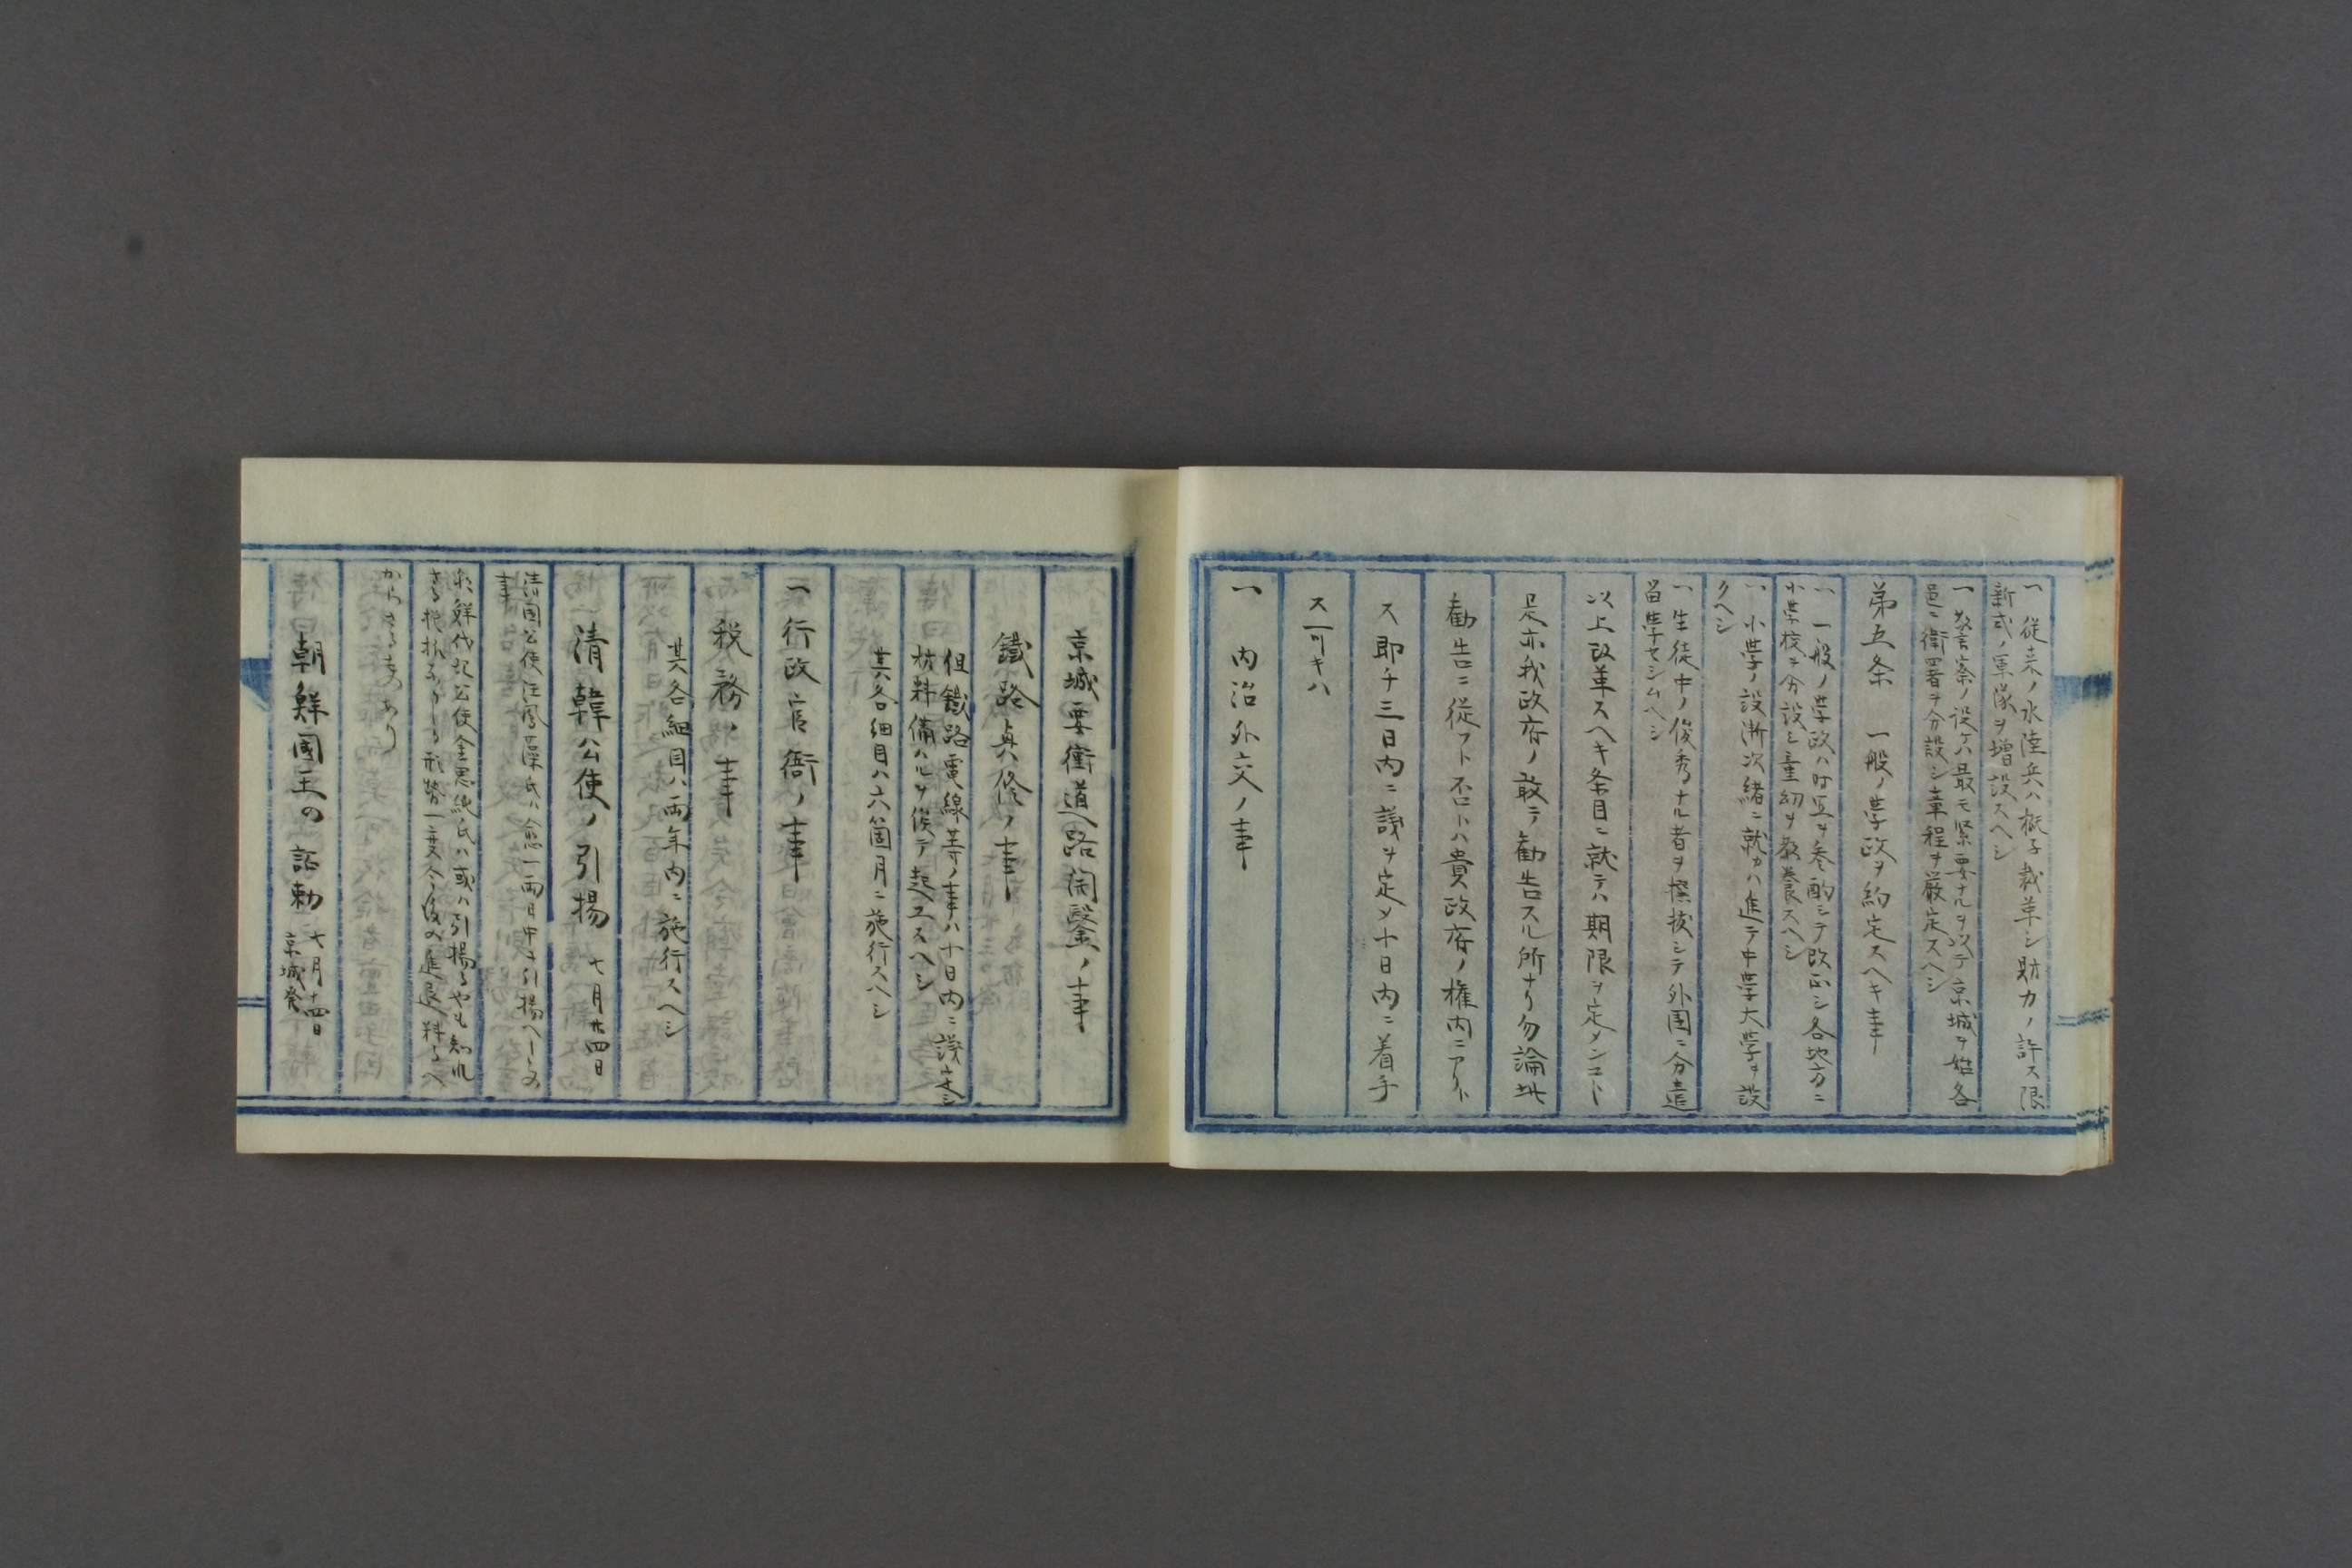 一 従来ノ水陸兵ハ概子裁革シ財力ノ許ス限
新式ノ軍隊ヲ増設スヘシ
一 警察ノ設ケハ最モ緊要ナルヲ以テ京城ヲ始各
邑ニ衛署ヲ分設シ章程ヲ厳定スヘシ
第五条 一般ノ学政ヲ約定スヘキ事
一 一般ノ学政ハ時宜ヲ参酌シテ改正シ各地方ニ
小学校ヲ分設シ童幼ヲ教養スヘシ
一 小学ノ設漸次緒ニ就カハ進テ中学大学ヲ設
クヘシ
一 生徒中ノ俊秀ナル者ヲ擢抜シテ外国ニ分遣
留学セシムヘシ
以上改革スヘキ条目ニ就テハ期限ヲ定メンコト
是亦我政府ノ敢テ勧告スル所ナリ勿論此
勧告ニ従フト否トハ貴政府ノ権内ニアリト
ス即チ三日内ニ議ヲ定メ十日内ニ着手
ス可キハ
一 内治外交ノ事
京城要衝道路開鑿ノ事
鐵路興修ノ事
但鐵路電線等ノ事ハ十日内ニ議定シ
材料備ハルヲ俟テ起工スヘシ
其各細目ハ六箇月ニ施行スヘシ
一行政官衙ノ事
税務ノ事
其各細目ハ両年内ニ施行スヘシ
清韓公使ノ引揚 七月廿四日
清国公使汪鳳藻氏ハ愈一両日中ニ引揚へしとの
事
朝鮮代理公使金思純氏ハ或ハ引揚るやも知れ
さる模様なりしも形勢一変今後の進退料るへ
からさるもあり
朝鮮國王の詔勅 七月十四日
京城発